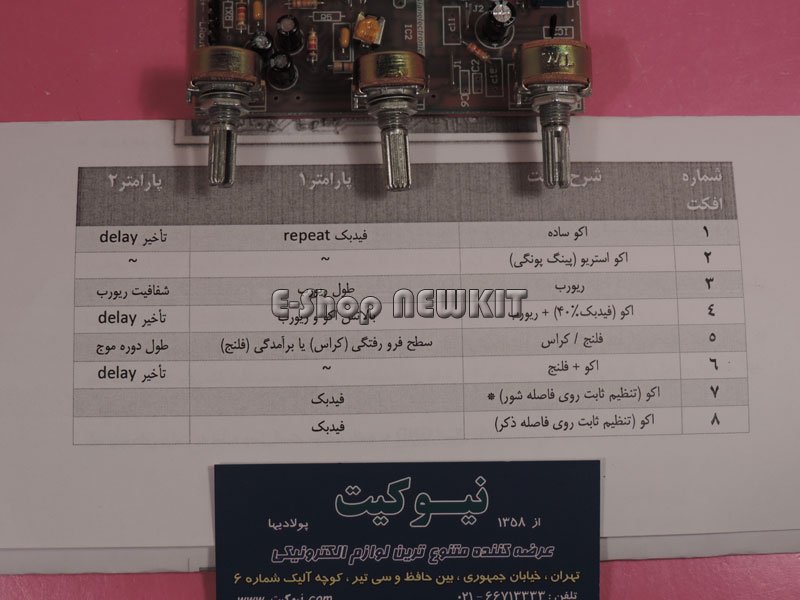 J2
R5
IC2
c11
C2
J1
شماره افکت شرح پارامتر۱ پارامتر۲
۱ اکو ساده فیدبک repeat تأخیر delay
۲ اکو استریو (پینگ پونگی) ~ ~
۳ ریورب طول ریورب شفافیت ریورب
۴ اکو (فیدبک ۴۰٪) + ریورب بالانس اکو و ریورب تأخیر delay
۵ فلنج / کراس سطح فرو رفتگی (کراس) یا برآمدگی (فلنج) طول دوره موج
۶ اکو + فلنج ~ تأخیر delay
۷ اکو (تنظیم ثابت روی فاصله شور) * فیدبک
۸ اکو (تنظیم ثابت روی فاصله ذکر) فیدبک
E-Shop NEWKIT
نیوکیت
از ۱۳۵۸ پولادیها
عرضه کننده متنوع ترین لوازم الکترونیکی
تهران ، خیابان جمهوری ، بین حافظ و سی تیر ، کوچه آلیک شماره ۶
تلفن : ۶۶۷۱۳۳۳۳ - ۰۲۱